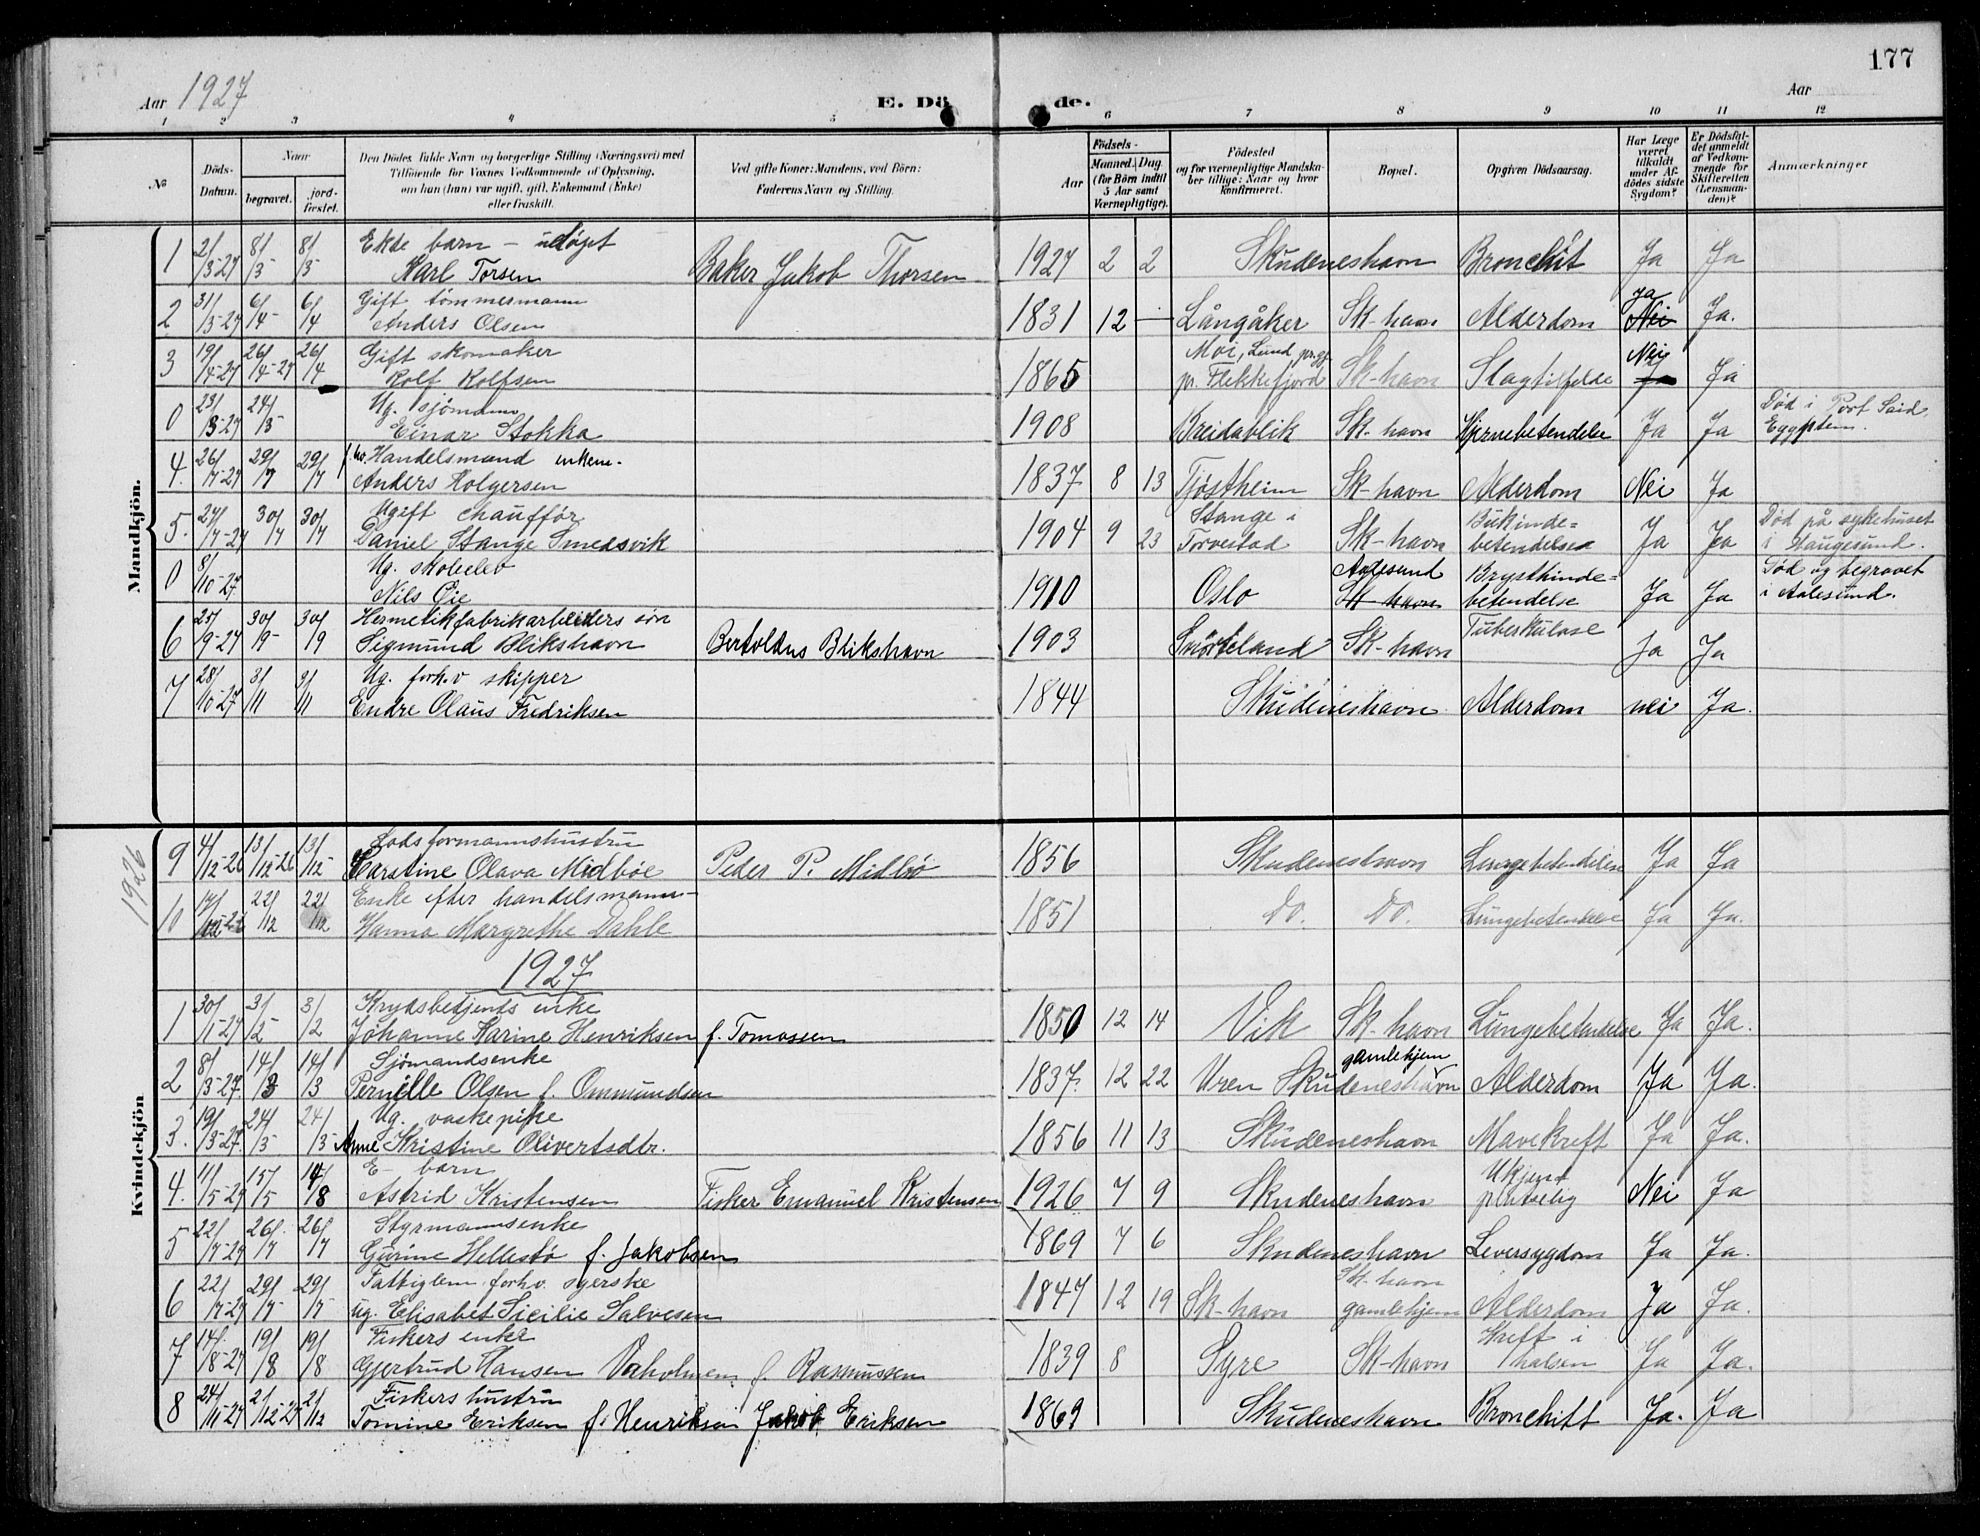 177
Aar 1927
E. Dö de.
Aar
1 2 3 4 5 6 7 8 9 10 11 12
No
Döds-Datum.
Naar
begravet.
jord-fæstet.
Den Dödes fulde Navn og borgerlige Stilling (Næringsvei) med
Tilföiende for Voxnes Vedkommende af Oplysning,
om han (hun) var ugift, gift, Enkemand (Enke)
eller fraskilt.
Ved gifte Koner: Mandens, ved Börn:
Faderens Navn og Stilling.
Aar
Födsels-
Maaned. Dag.
(for Börn indtil
5 Aar samt
Værnepligtige).
Födested
og for værnepligtige Mandska-
ber tillige: Naar og hvor
konfirmeret.
Bopæl.
Opgiven Dödsaarsag.
Har Læge
været
tilkaldt
under Af-
dödes sidste
Sygdom?
Er Dödsfal-
det anmeldt
af Vedkom-
mende for
Skifteretten
(Lensman-
den)?
Anmærkninger
Mandkjön.
1 2/3-27 8/3 8/3 Ekte barn – udöpt
Karl Torsen Baker Jakob Thorsen 1927 2 2 Skudeneshavn Bronchit Ja Ja
2 31/3-27 6/4- 6/4 Gift tømmermann
Anders Olsen 1831 12 — Långåker Sk-havn Alderdom Nei Ja Ja.
3 19/4-27 26/4-27 26/4 Gift skomaker
Rolf Rolfsen 1865 Moi, Lund pr.gj. pr. Flekkefjord Sk-havn Slagtilfelde Ja Nei Ja
0 23/3-27 24/3 Ug. sjömann
Einar Stokka 1908 Breidablik Sk-havn Hjernebetendelse Ja Ja Död i Port Said, Egypten.
4. 26/7-27 29/7 29/7 f.hv. Handelsmand enkem.
Anders Holgersen 1837 8 13 Tjöstheim Sk-havn Alderdom Nei Ja
5. 27/7-27 30/7 30/7 Ugift chauffør
Daniel Stange Smedsvik 1904 9 23 Stange i Torvestad Sk-havn Bukhinde=betendelse Ja Ja Död på sykehuset i Haugesund.
0 8/10-27 Ug. skoleelev
Nils Öie 1910 Oslo Sk-havn Aalesund Brysthinde=betendelse Ja Ja Död og begravet i Aalesund.
6 25/9-27 30/9- 30/9 Hermetikfabrikarbeiders sön
Sigmund Blikshavn Bertoldus Blikshavn 1903 Snörteland Sk-havn Tuberkulose Ja Ja
7 28/10-27 3/11 3/11 Ug. forh.v skipper
Endre Olaus Fredriksen 1844 Skudeneshavn Alderdom nei Ja.
Kvindekjön
1926
9 4/12-26 13/12-26 13/12- Lodsformannshustru
Karstine Olava Midböe Peder P. Midbö 1856 Skudeneshavn Lungebetendelse Ja Ja
10 22/12 22/12 Enke efter handelsmann
Hanna Margrethe Dahle 1851 Do. Do. Lungebetendelse Ja Ja.
1927
1 30/1-27 3/2- 3/2 Krydsbetjents enke
Johanne Karine Henriksen f. Tomassen 1850 12 14 Vik Sk-havn Lungebetendelse Ja Ja.
2 8/3-27. 14/3 14/3 Sjömandsenke
Pernille Olsen f. Ommundsen 1837. 12 22 Vren Skudeneshavn gamlehjem Alderdom Ja Ja.
3. 19/3-27. 24/3 24/3- Ug. vaskepike
Anne Kristine Olivertsdtr. 1856 11 13 Skudeneshavn Mavekreft Ja Ja.
4. 11/5-27 15/5 14/8 E- barn
Astrid Kristensen Fisker Emanuel Kristensen 1926 7 9 Skudeneshavn Ukjent plutselig Nei Ja
5 22/7-27 26/7 26/7 Styrmannsenke
Gurine Hellestö f. Jakobsen 1869 7 6 Skudeneshavn Leversygdom Ja Ja.
6 22/7-27 29/7- 29/7- Fattiglem forhv. syerske
ug. Elisabet Sicilie Salvesen 1847 12 19 Sk-havn Sk-havn gamlehjem Alderdom Ja Ja.
7 14/8-27 19/8 19/8 Fiskers enke
Gjertrud Hansen Vaholmen f. Rasmussen 1839 8 Syre Sk-havn Kreft i halsen Ja Ja.
8 24/11-27 2/12-27 2/12 Fiskers hustru
Tomine Eriksen f. Henriksen Jakob Eriksen 1869 Skudeneshavn Bronchitt Ja. Ja